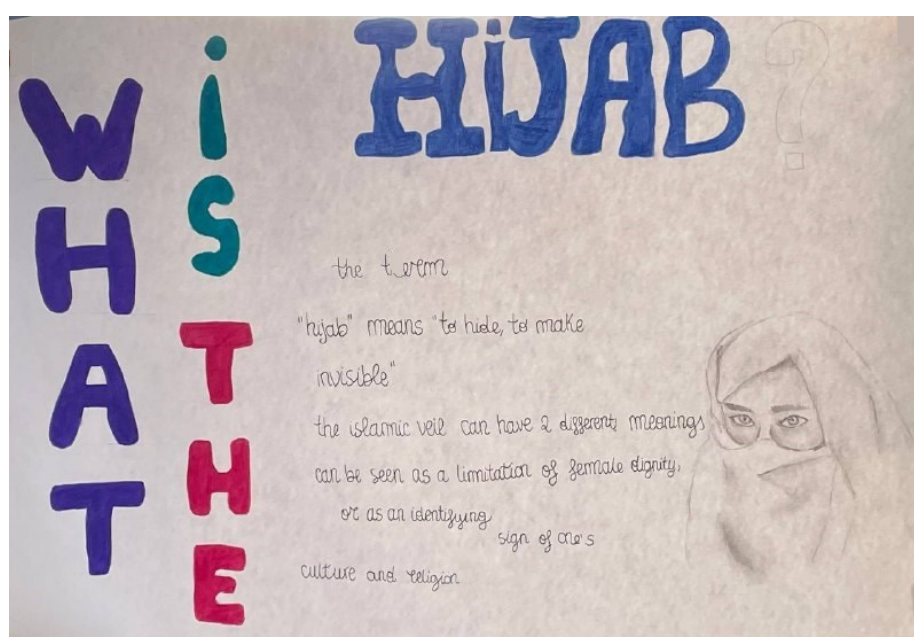 WHAT
iS
THE
HiJAB?
the term
"hijab" means "to hide, to make
invisible"
the islamic veil can have 2 different meanings
can be seen as a limitation of female dignity,
or as an identifying
sign of one's
culture and religion